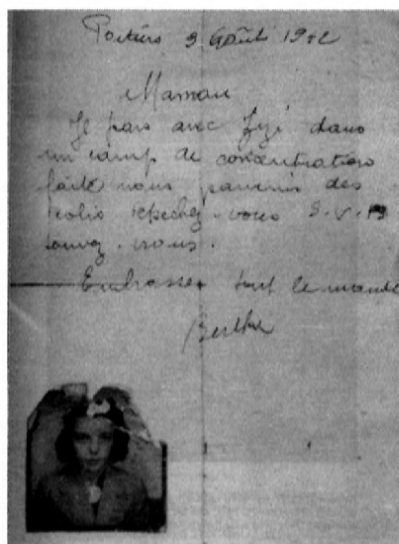 Poitiers 3 Août 1942
Maman
Je pars avec Zizi dans
un camp de concentration
faite nous parvenir des
colis depechez-vous S.V.P
sauvez-nous.
Embrasse tout le monde
Berthe